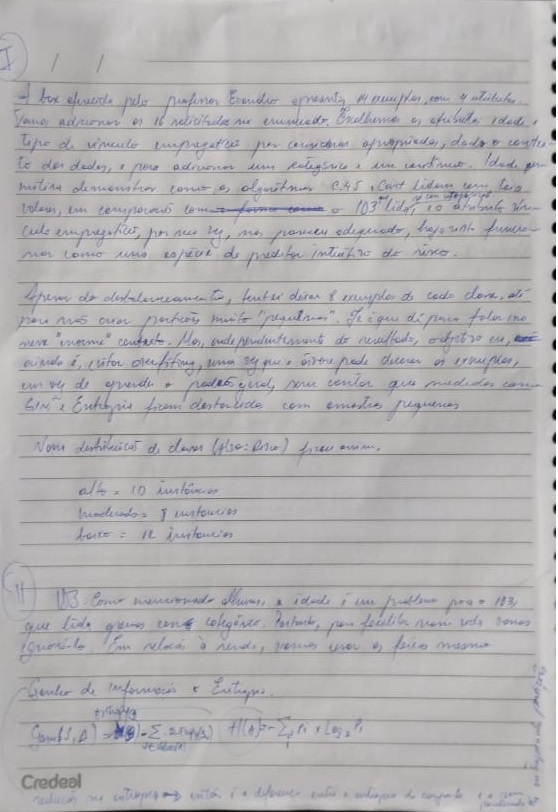 I / /
A base oferecida pelo professor Evandro apresenta 14 exemplos, com 4 atributos.
Vamos adicionar os 16 solicitados no enunciado. Escolhemos os atributos idade e
tipo de vínculo empregatício por considerar apropriados, dado o contex-
to dos dados, e para adicionar um categórico e um contínuo. Idade per-
mitiria demonstrar como os algoritmos C4.5 e Cart lidam com tais
valores, em comparação com o ID3 lida, e o atributo vín-
culo empregatício, por sua vez, nos pareceu adequado, funcio-
nar como uma espécie de preditor intuitivo do risco.
Apesar do desbalanceamento, tentei deixar 8 exemplos de cada classe, até
para não criar partições muito "pequenas". Se é que dá para falar no
nesse "enorme" conjunto. Mas, independentemente do resultado, o objetivo
ainda é, evitar overfitting, uma vez que a árvore pode decorar os exemplos,
em vez de aprender o padrão geral, sem contar que medidas como
Gini e Entropia ficam destorcidas com amostras pequenas
Nova distribuição de classes (Risco) ficou assim.
alto = 10 instâncias
moderado = 8 instancias
baixo = 12 instancias
II ID3: Como mencionado, a idade é um problema para o ID3,
que lida apenas com categórico. Portanto, para facilitar nossa vida vamos
ignorá-lo. Em relação à renda, vamos usar as faixas mesmo
Ganho de informação e Entropia.
Gain(S, A) = - Σ H(S) = - Σ Pi * Log2 Pi
Credeal
redução na entropia então, é a diferença entre a entropia do conjunto e a